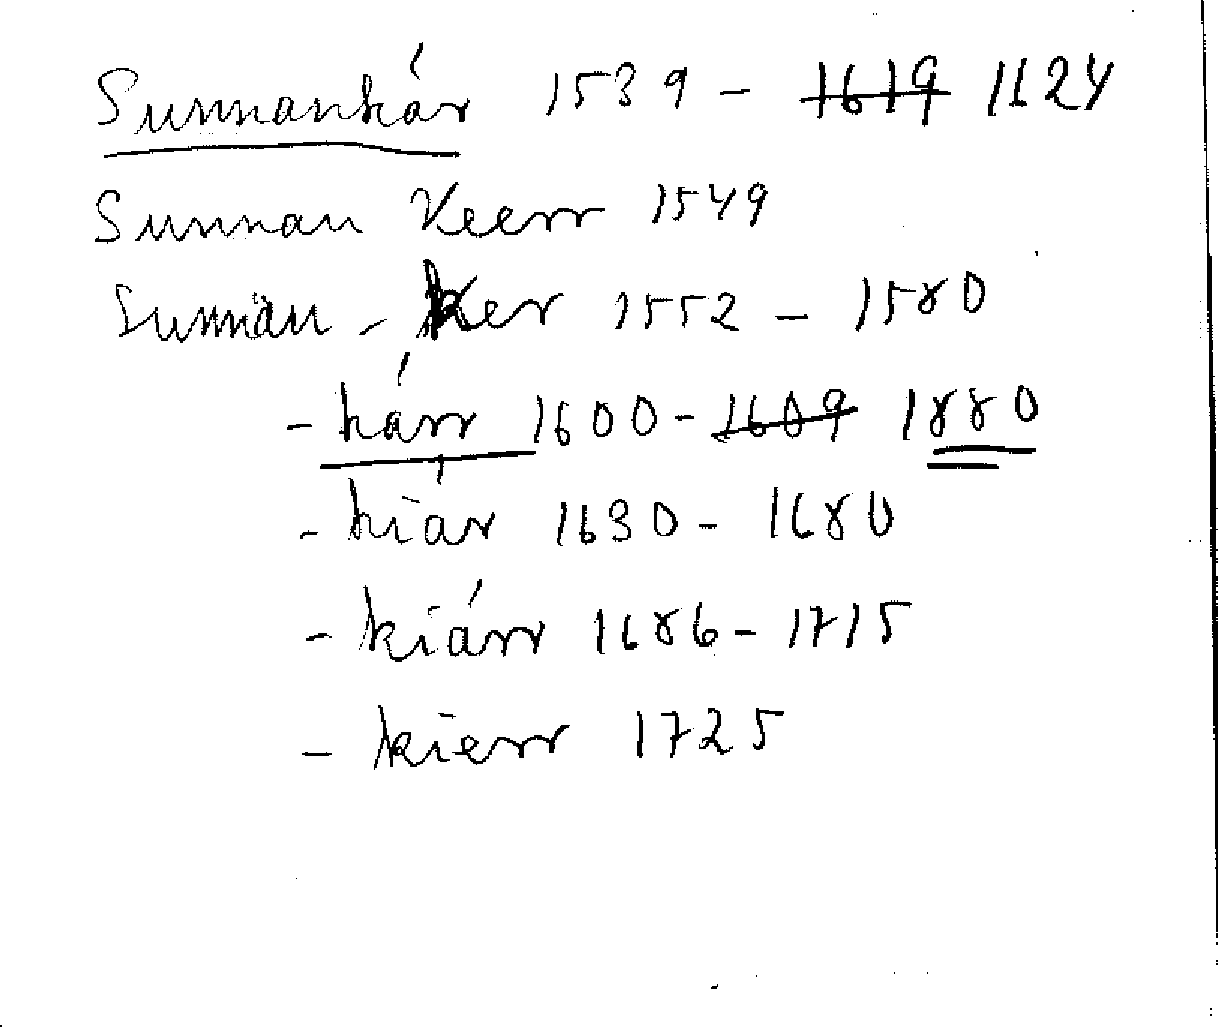 Sunnankár 1539 - 1619 1624
Sunnan Keerr 1549
Sunnan - Ker 1552 - 1580
- kárr 1600 - 1609 1880
- kiár 1630 - 1680
- kiárr 1686 - 1715
- kierr 1725